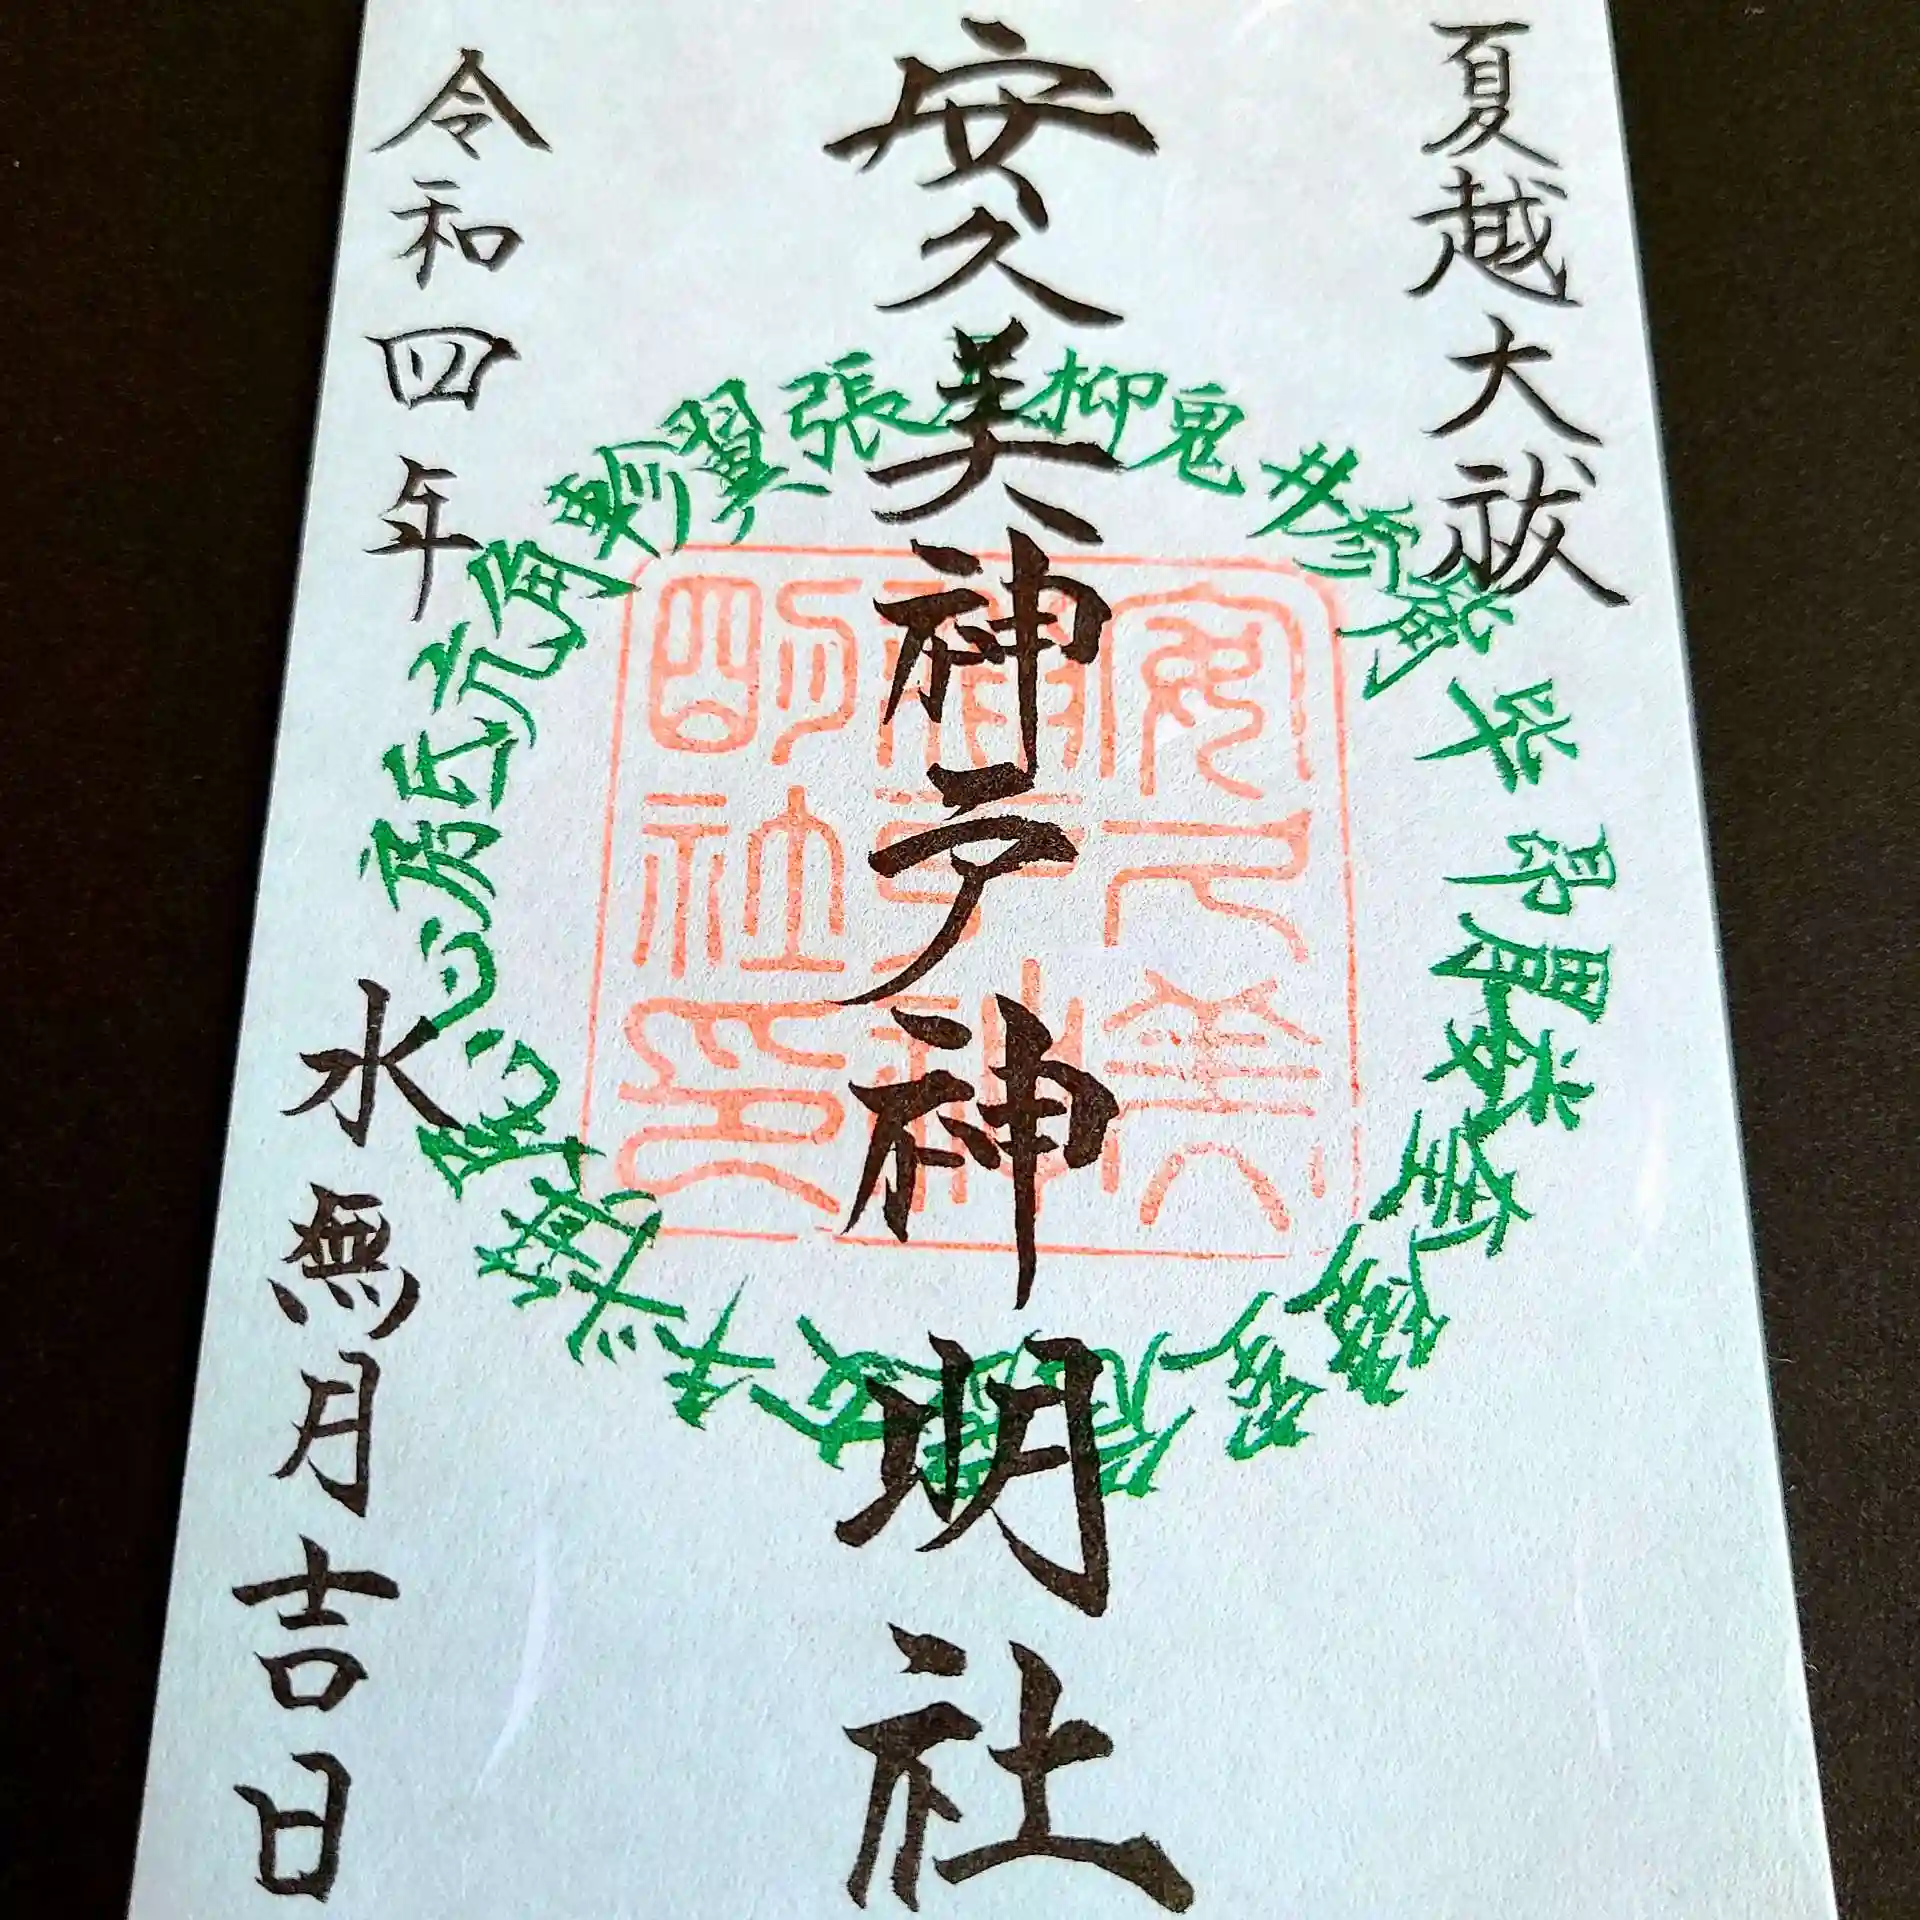 夏越大祓
安久美神戸神明社
令和四年
水無月吉日
角亢氐房心
奎婁胃昴畢觜参井鬼柳星張翼軫
安久美神戸神明社印